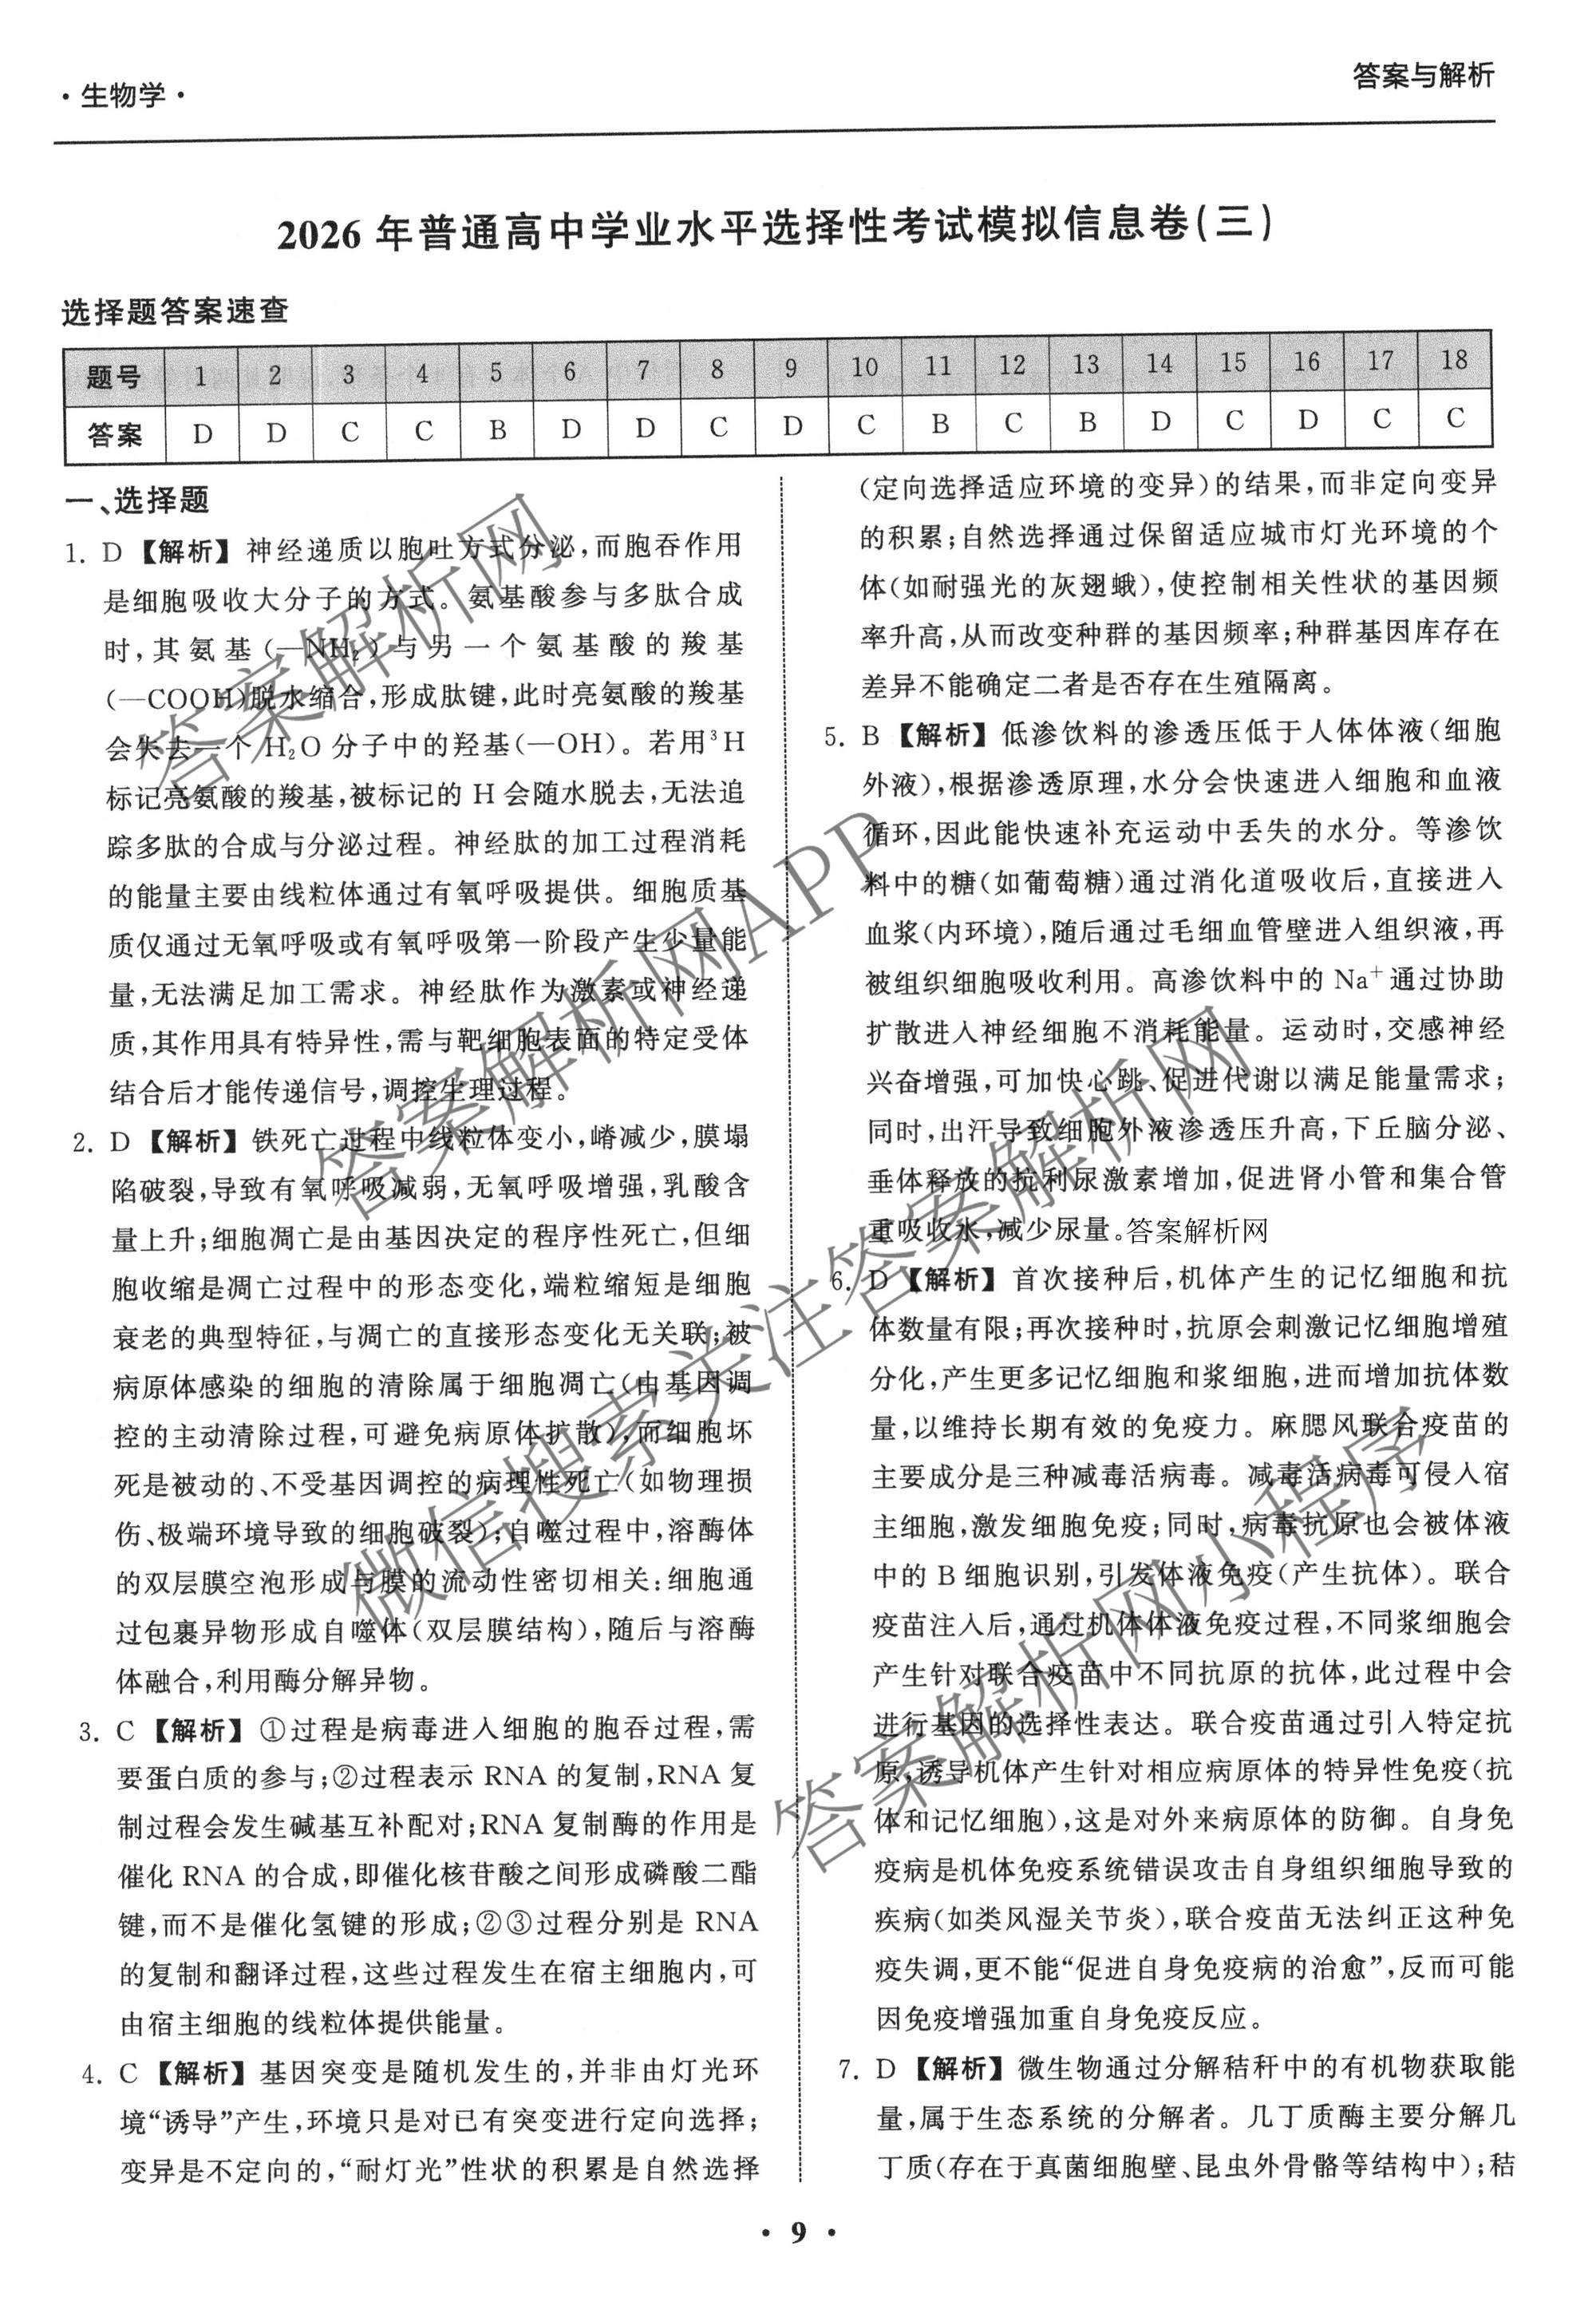 ·生物学·
答案与解析
2026年普通高中学业水平选择性考试模拟信息卷(三)
选择题答案速查
题号 1 2 3 4 5 6 7 8 9 10 11 12 13 14 15 16 17 18
答案 D D C C B D D C D C B C B D C D C C
一、选择题
1. D【解析】神经递质以胞吐方式分泌,而胞吞作用
是细胞吸收大分子的方式。氨基酸参与多肽合成
时,其氨基(—NH₂)与另一个氨基酸的羧基
(—COOH)脱水缩合,形成肽键,此时亮氨酸的羧基
会失去一个H₂O分子中的羟基(—OH)。若用³H
标记亮氨酸的羧基,被标记的H会随水脱去,无法追
踪多肽的合成与分泌过程。神经肽的加工过程消耗
的能量主要由线粒体通过有氧呼吸提供。细胞质基
质仅通过无氧呼吸或有氧呼吸第一阶段产生少量能
量,无法满足加工需求。神经肽作为激素或神经递
质,其作用具有特异性,需与靶细胞表面的特定受体
结合后才能传递信号,调控生理过程。
2. D【解析】铁死亡过程中线粒体变小,嵴减少,膜塌
陷破裂,导致有氧呼吸减弱,无氧呼吸增强,乳酸含
量上升;细胞凋亡是由基因决定的程序性死亡,但细
胞收缩是凋亡过程中的形态变化,端粒缩短是细胞
衰老的典型特征,与凋亡的直接形态变化无关联;被
病原体感染的细胞的清除属于细胞凋亡(由基因调
控的主动清除过程,可避免病原体扩散),而细胞坏
死是被动的、不受基因调控的病理性死亡(如物理损
伤、极端环境导致的细胞破裂);自噬过程中,溶酶体
的双层膜空泡形成与膜的流动性密切相关:细胞通
过包裹异物形成自噬体(双层膜结构),随后与溶酶
体融合,利用酶分解异物。
3. C【解析】①过程是病毒进入细胞的胞吞过程,需
要蛋白质的参与;②过程表示RNA的复制,RNA复
制过程会发生碱基互补配对;RNA复制酶的作用是
催化RNA的合成,即催化核苷酸之间形成磷酸二酯
键,而不是催化氢键的形成;②③过程分别是RNA
的复制和翻译过程,这些过程发生在宿主细胞内,可
由宿主细胞的线粒体提供能量。
4. C【解析】基因突变是随机发生的,并非由灯光环
境“诱导”产生,环境只是对已有突变进行定向选择;
变异是不定向的,“耐灯光”性状的积累是自然选择
(定向选择适应环境的变异)的结果,而非定向变异
的积累;自然选择通过保留适应城市灯光环境的个
体(如耐强光的灰翅蛾),使控制相关性状的基因频
率升高,从而改变种群的基因频率;种群基因库存在
差异不能确定二者是否存在生殖隔离。
5. B【解析】低渗饮料的渗透压低于人体体液(细胞
外液),根据渗透原理,水分会快速进入细胞和血液
循环,因此能快速补充运动中丢失的水分。等渗饮
料中的糖(如葡萄糖)通过消化道吸收后,直接进入
血浆(内环境),随后通过毛细血管壁进入组织液,再
被组织细胞吸收利用。高渗饮料中的Na⁺通过协助
扩散进入神经细胞不消耗能量。运动时,交感神经
兴奋增强,可加快心跳、促进代谢以满足能量需求;
同时,出汗导致细胞外液渗透压升高,下丘脑分泌、
垂体释放的抗利尿激素增加,促进肾小管和集合管
重吸收水,减少尿量。答案解析网
6. D【解析】首次接种后,机体产生的记忆细胞和抗
体数量有限;再次接种时,抗原会刺激记忆细胞增殖
分化,产生更多记忆细胞和浆细胞,进而增加抗体数
量,以维持长期有效的免疫力。麻腮风联合疫苗的
主要成分是三种减毒活病毒。减毒活病毒可侵入宿
主细胞,激发细胞免疫;同时,病毒抗原也会被体液
中的B细胞识别,引发体液免疫(产生抗体)。联合
疫苗注入后,通过机体体液免疫过程,不同浆细胞会
产生针对联合疫苗中不同抗原的抗体,此过程中会
进行基因的选择性表达。联合疫苗通过引入特定抗
原,诱导机体产生针对相应病原体的特异性免疫(抗
体和记忆细胞),这是对外来病原体的防御。自身免
疫病是机体免疫系统错误攻击自身组织细胞导致的
疾病(如类风湿关节炎),联合疫苗无法纠正这种免
疫失调,更不能“促进自身免疫病的治愈”,反而可能
因免疫增强加重自身免疫反应。
7. D【解析】微生物通过分解秸秆中的有机物获取能
量,属于生态系统的分解者。几丁质酶主要分解几
丁质(存在于真菌细胞壁、昆虫外骨骼等结构中);秸
· 9 ·
答案解析网
答案解析网APP
微信搜索关注答案解析网
答案解析网小程序